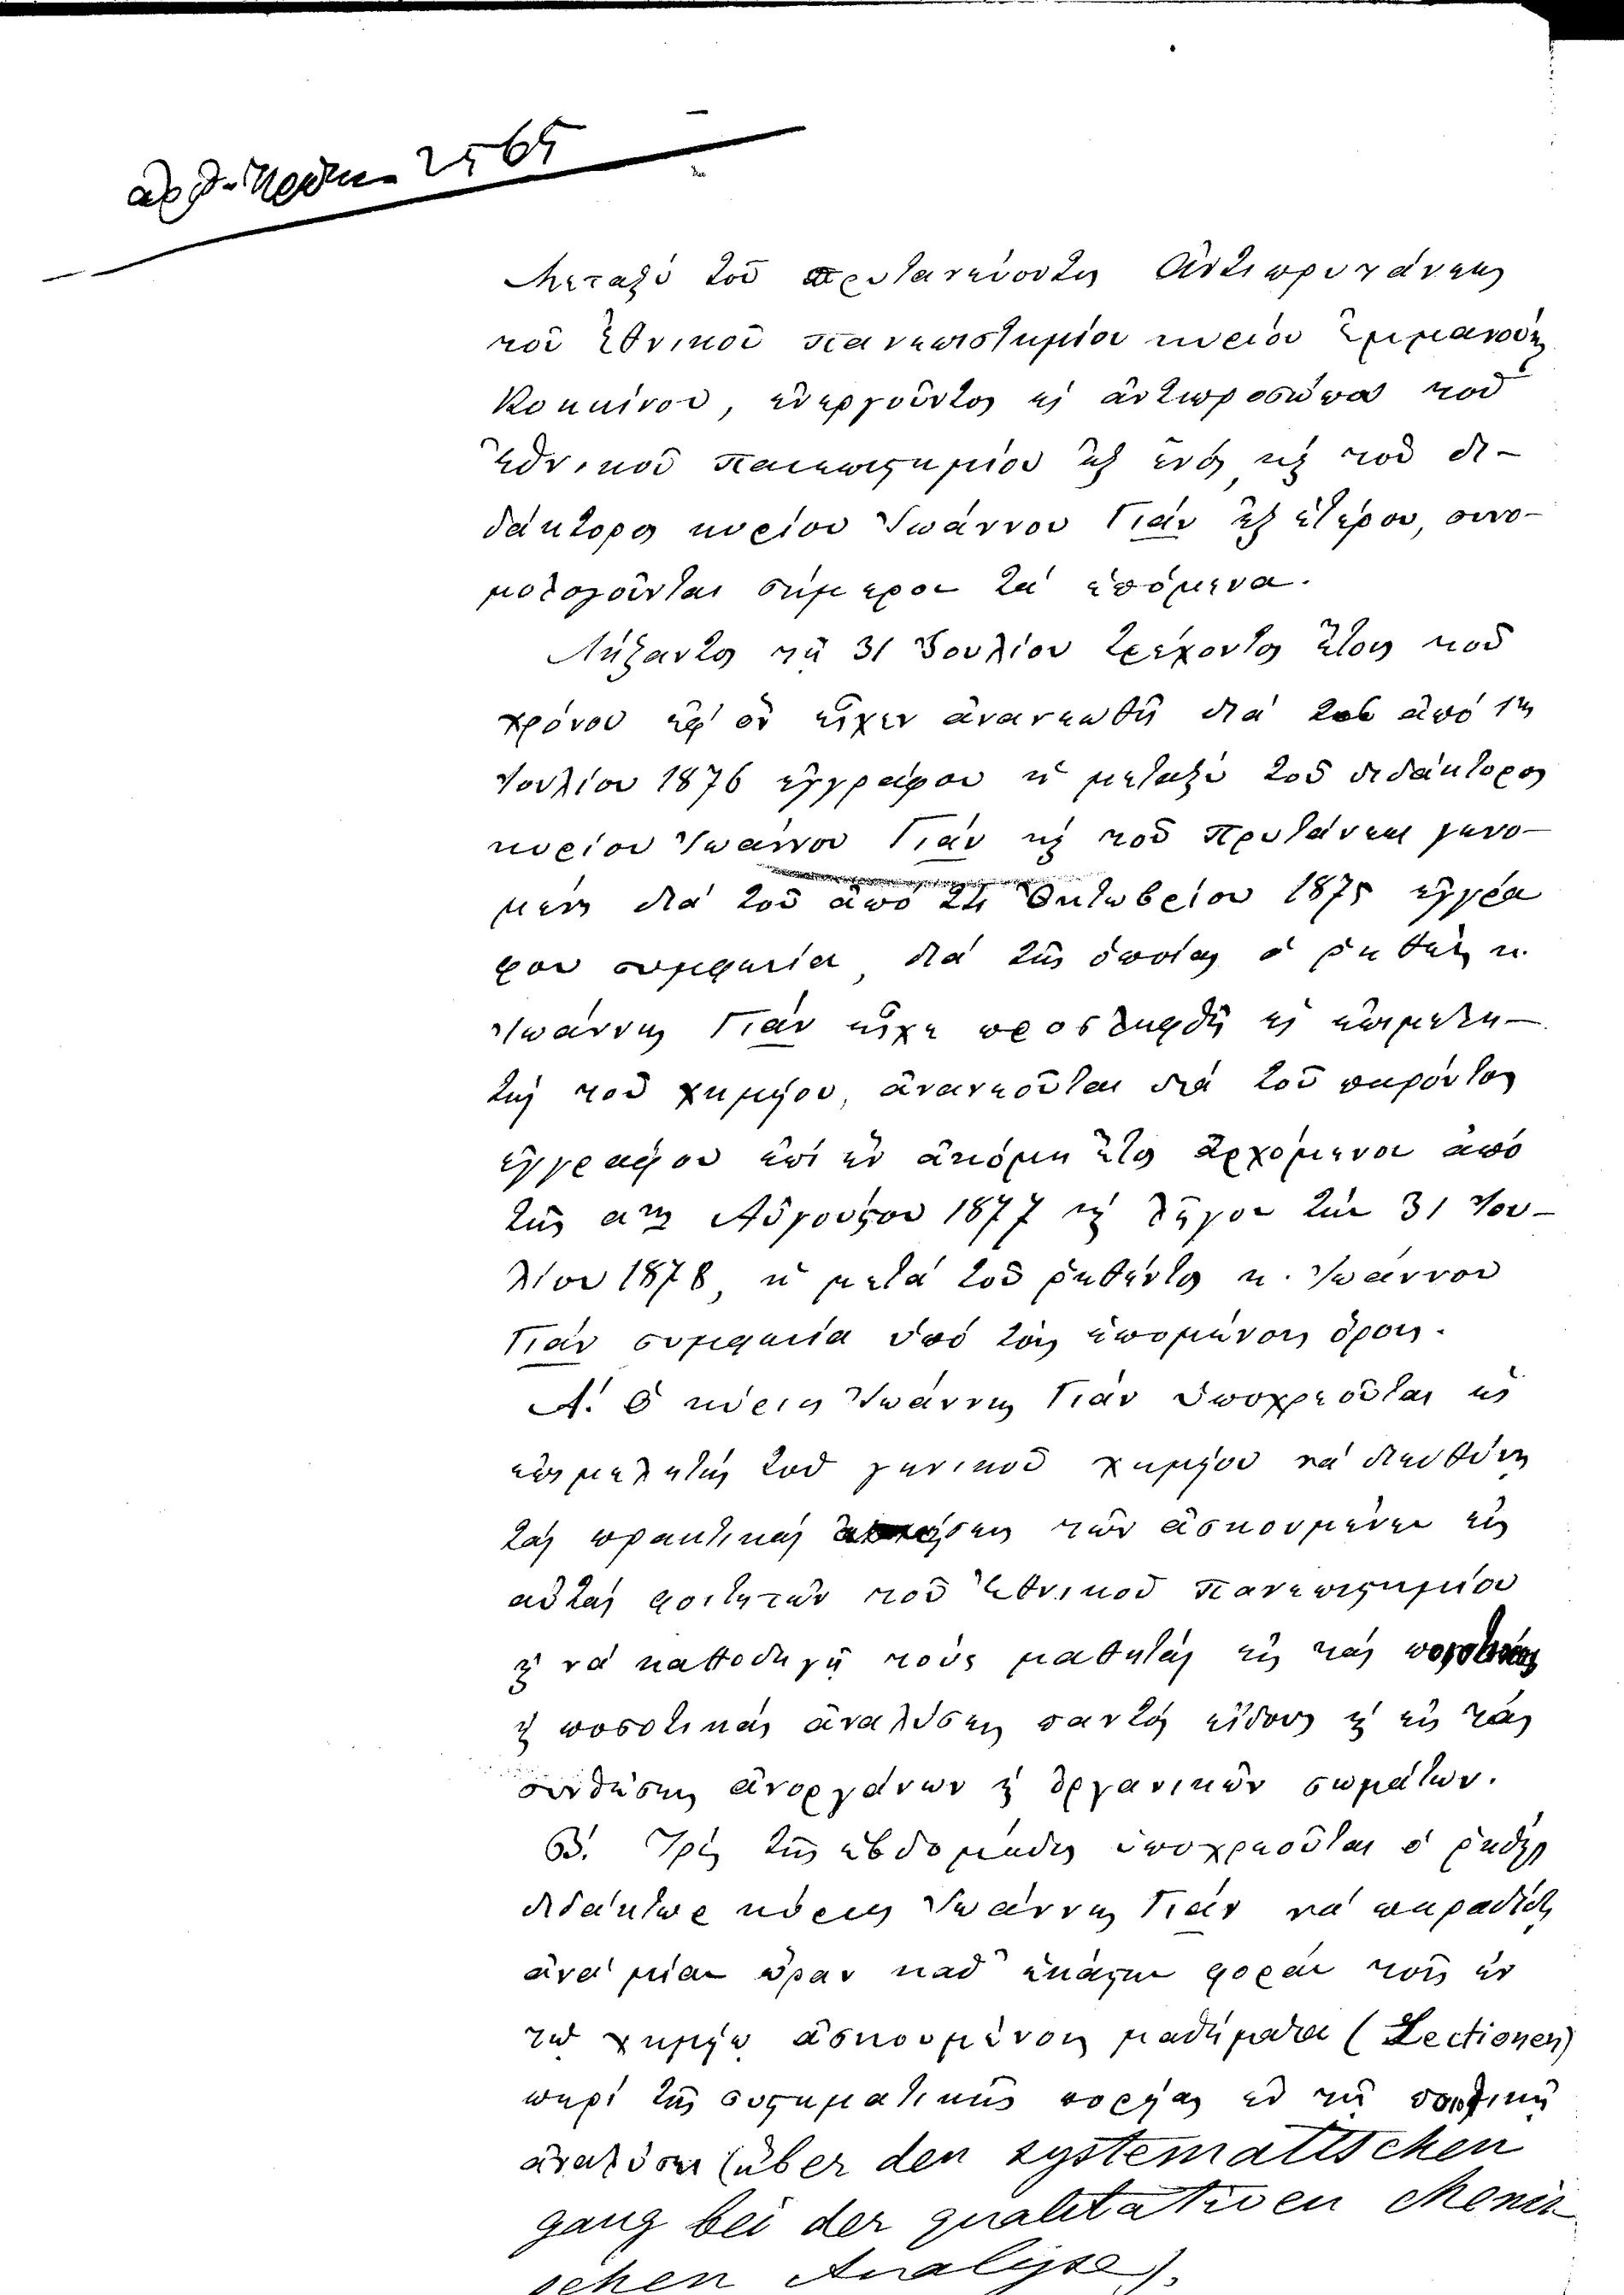 ἀρθ. Πρωτ. 2565
Μεταξὺ τοῦ πρυτανεύοντος Ἀντιπρυτάνεως
τοῦ Ἐθνικοῦ Πανεπιστημίου κυρίου Ἐμμανουὴλ
Κοκκίνου, ἐνεργοῦντος ὡς ἀντιπροσώπου τοῦ
Ἐθνικοῦ Πανεπιστημίου ἐξ ἑνὸς, καὶ τοῦ δι-
δάκτορος κυρίου Ἰωάννου Γιὰν ἐξ ἑτέρου, συνο-
μολογοῦνται σήμερον τὰ ἑπόμενα.
Λήξαντος τῇ 31 Ἰουλίου τρέχοντος ἔτους τοῦ
χρόνου ἐφ' ὃν εἶχεν ἀνανεωθῆ διὰ τοῦ ἀπὸ 1ης
Ἰουλίου 1876 ἐγγράφου ἡ μεταξὺ τοῦ διδάκτορος
κυρίου Ἰωάννου Γιὰν καὶ τοῦ Πρυτάνεως γενο-
μένη διὰ τοῦ ἀπὸ 24 Ὀκτωβρίου 1875 ἐγγρά
φου συμφωνία, διὰ τῆς ὁποίας ὁ ῥηθεὶς κ.
Ἰωάννης Γιὰν εἶχε προσληφθῆ ὡς ἐπιμελη-
τὴς τοῦ χημείου, ἀνανεοῦται διὰ τοῦ παρόντος
ἐγγράφου ἐπὶ ἓν ἀκόμη ἔτος ἀρχόμενον ἀπὸ
τῆς α ης Αὐγούστου 1877 καὶ λῆγον τὴν 31 Ἰου-
λίου 1878, ἡ μετὰ τοῦ ῥηθέντος κ. Ἰωάννου
Γιὰν συμφωνία ὑπὸ τοὺς ἑπομένους ὅρους.
Α! Ὁ κύριος Ἰωάννης Γιὰν ὑποχρεοῦται ὡς
ἐπιμελητὴς τοῦ γενικοῦ χημείου νὰ διευθύνῃ
τὰς πρακτικὰς ἀσκήσεις τῶν ἀσκουμένων εἰς
αὐτὰς φοιτητῶν τοῦ Ἐθνικοῦ Πανεπιστημίου
καὶ νὰ καθοδηγῇ τοὺς μαθητὰς εἰς τὰς ποιοτικὰς
καὶ ποσοτικὰς ἀναλύσεις παντὸς εἴδους καὶ εἰς τὰς
συνθέσεις ἀνοργάνων καὶ ὀργανικῶν σωμάτων.
Β!. Τρὶς τῆς ἑβδομάδος ὑποχρεοῦται ὁ ῥηθεὶς
διδάκτωρ κύριος Ἰωάννης Γιὰν νὰ παραδίδῃ
ἀνὰ μίαν ὥραν καθ' ἑκάστην φορὰν τοῖς ἐν
τῷ χημείῳ ἀσκουμένοις μαθήματα (Lectionen)
περὶ τῆς συστηματικῆς πορείας ἐν τῇ ποιοτικῇ
ἀναλύσει (über den systematischen
gang bei der qualitativen chemis
schen Analyse).